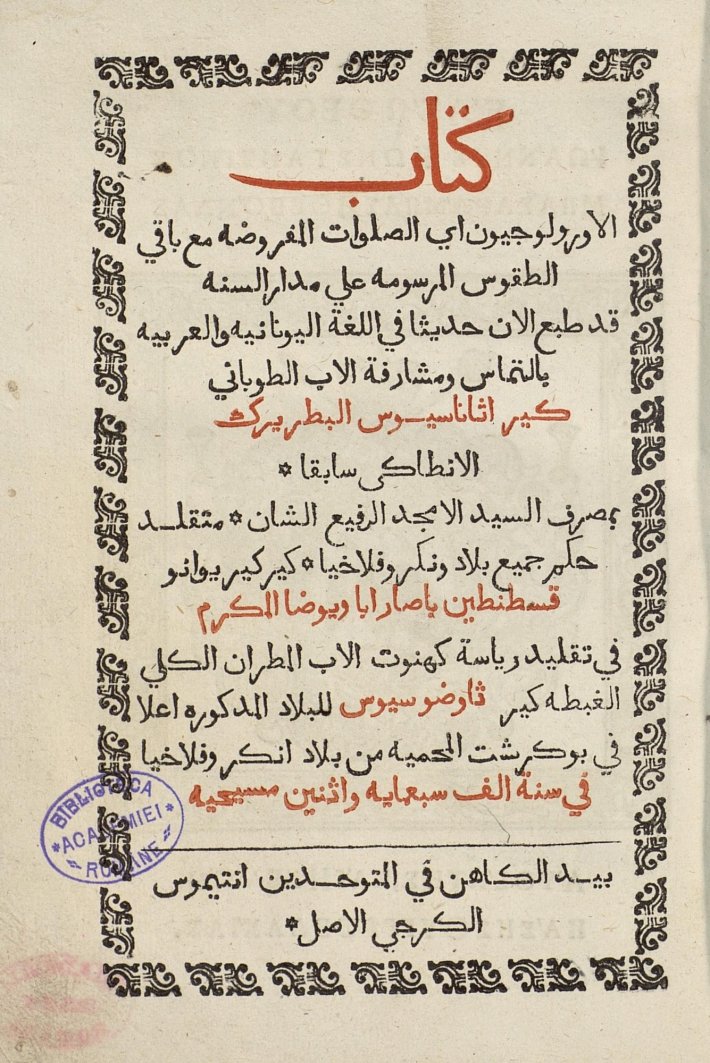 كتاب
الاورولوجيون اي الصلوات المفروضه مع باقي
الطقوس المرسومه علي مدار السنه
قد طبع الان حديثا في اللغة اليونانيه والعربيه
بالتماس ومشارفة الاب الطوباني
كير اثاناسيوس البطريرك
الانطاكي سابقا *
بمصرف السيد الامجد الرفيع الشان * متقلد
حكم جميع بلاد ونكروفلاخيا * كيركير يوانو
قسطنطين باصارابا ويوضا المكرم
في تقليد رياسة كهنوت الاب المطران الكلي
الغبطه كير ثاوضوسيوس للبلاد المذكوره اعلا
في بوكرشت المحميه من بلاد انكروفلاخيا
في سنة الف سبعمايه واثنين مسيحيه
بيد الكاهن في المتوحدين انتيموس
الكرجي الاصل *
BIBLIOTECA
*ACADEMIEI*
ROMANE